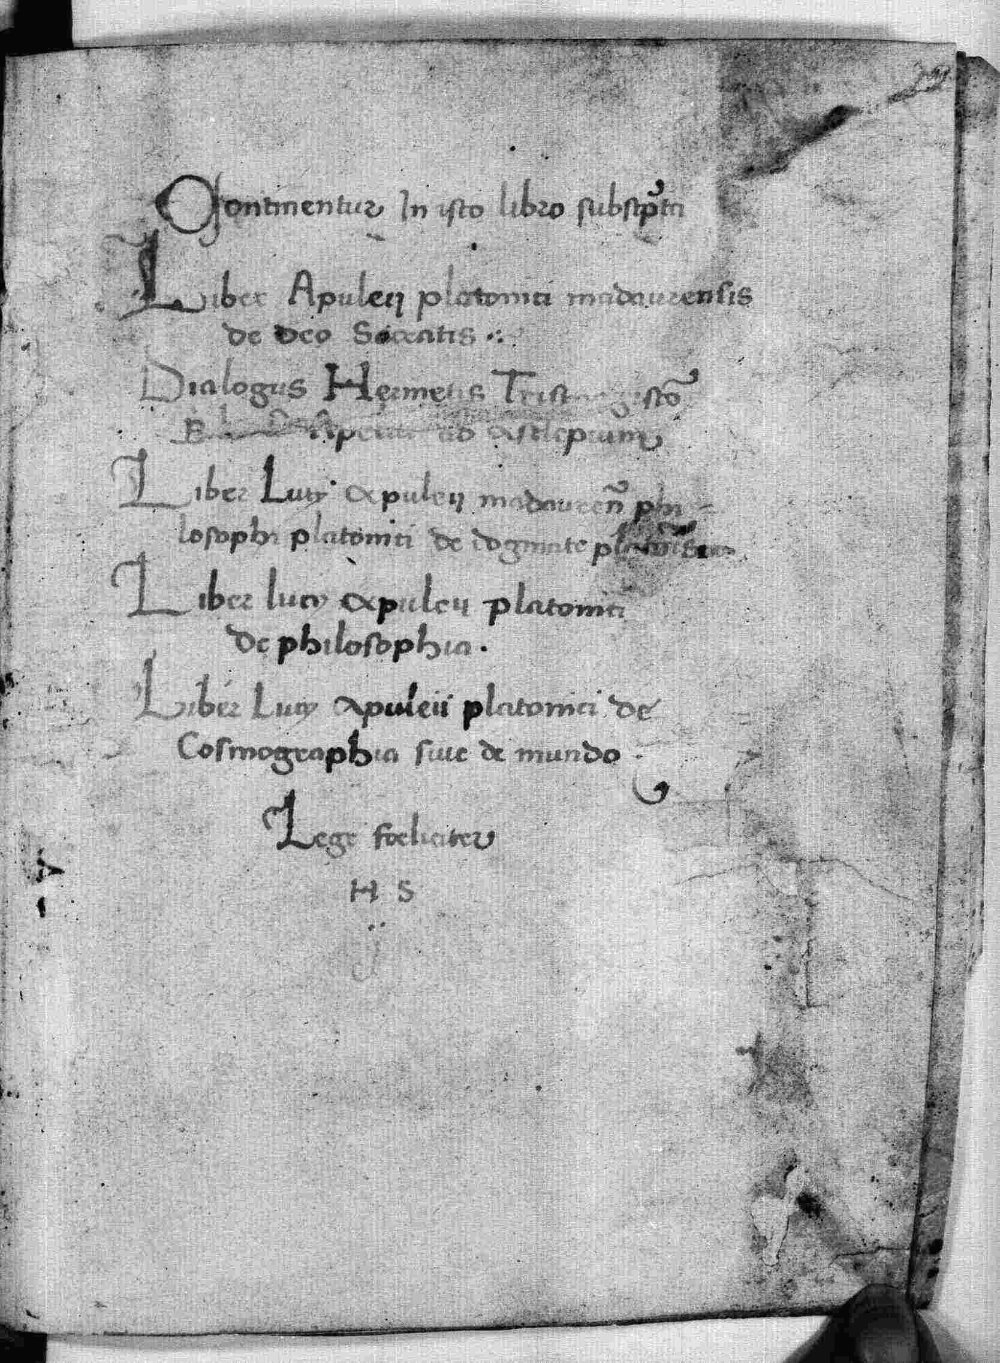 Continentur In isto libro subscp̃ta
Liber Apuleij platonici madaurensis
de deo Socratis
Dialogus Hermetis Trismegistõ
Apuleii ad asclepium
Liber Lucij Apuleij madaureñ phi
losophi platonici de dogmate platonis
Liber lucij Apuleij platonici
de philosophia.
Liber Lucij Apuleii platonici de
Cosmographia siue de mundo
Lege foeliciter
H S